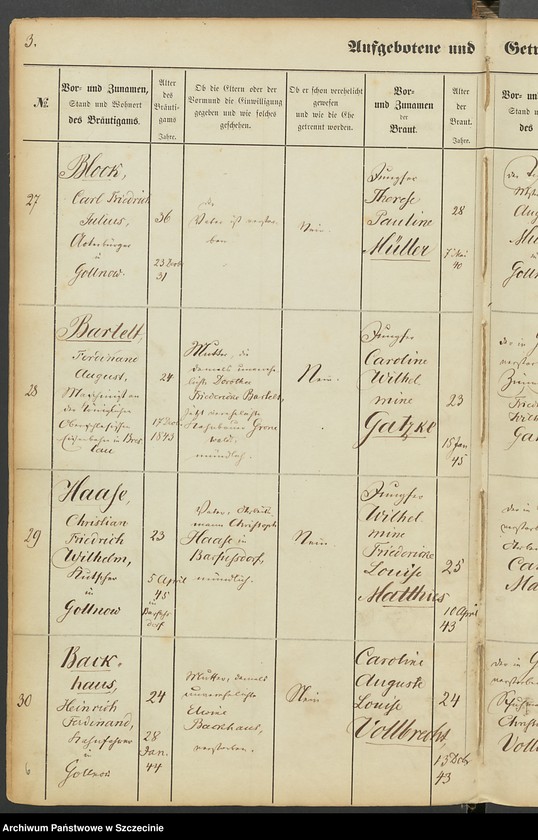 3.
Aufgebotene und Getr
№
Vor- und Zunamen,
Stand und Wohnort
des Bräutigams.
Alter
des
Bräuti-
gams
Jahre.
Ob die Eltern oder der
Vormund die Einwilligung
gegeben und wie solches
geschehen.
Ob er schon verehelicht
gewesen
und wie die Ehe
getrennt worden.
Vor-
und Zunamen
der
Braut.
Alter
der
Braut.
Jahre.
Vor- un
Stand u
des
27
Block,
Carl Friedrich
Julius,
Ackerbürger
in
Gollnow.
36
31
Vater ist verstor-
ben
Nein.
Jungfer
Therese
Pauline
Müller
28
7 Mai
40
28
Bartelt,
Ferdinand
August,
Maschinist an
der Königlichen
Oberschlesischen
Eisenbahn in Bres
lau
24
17 Decb.
1843
Mutter, die
damals unverehe-
lichte Dorothee
Friederike Bartelt,
jetzt verehelichte
mündlich.
Nein.
Jungfer
Caroline
Wilhel
mine
Gatzke
23
15 Jan
45
29
Haase,
Christian
Friedrich
Wilhelm,
Kutscher
in
Gollnow
23
5 April
45
in
Vater,
mann Christoph
Haase in
mündlich.
Nein
Jungfer
Wilhel
mine
Friederike
Louise
Matthies
25
10 April
43
30
Back-
haus,
Heinrich
Ferdinand,
in
Gollnow
24
28
Jan.
44
Mutter, damals
unverehelichte
Backhaus,
verstorben.
Nein
Caroline
Auguste
Louise
Vollbrecht,
24
15 Decbr
43
6
Archiwum Państwowe w Szczecinie